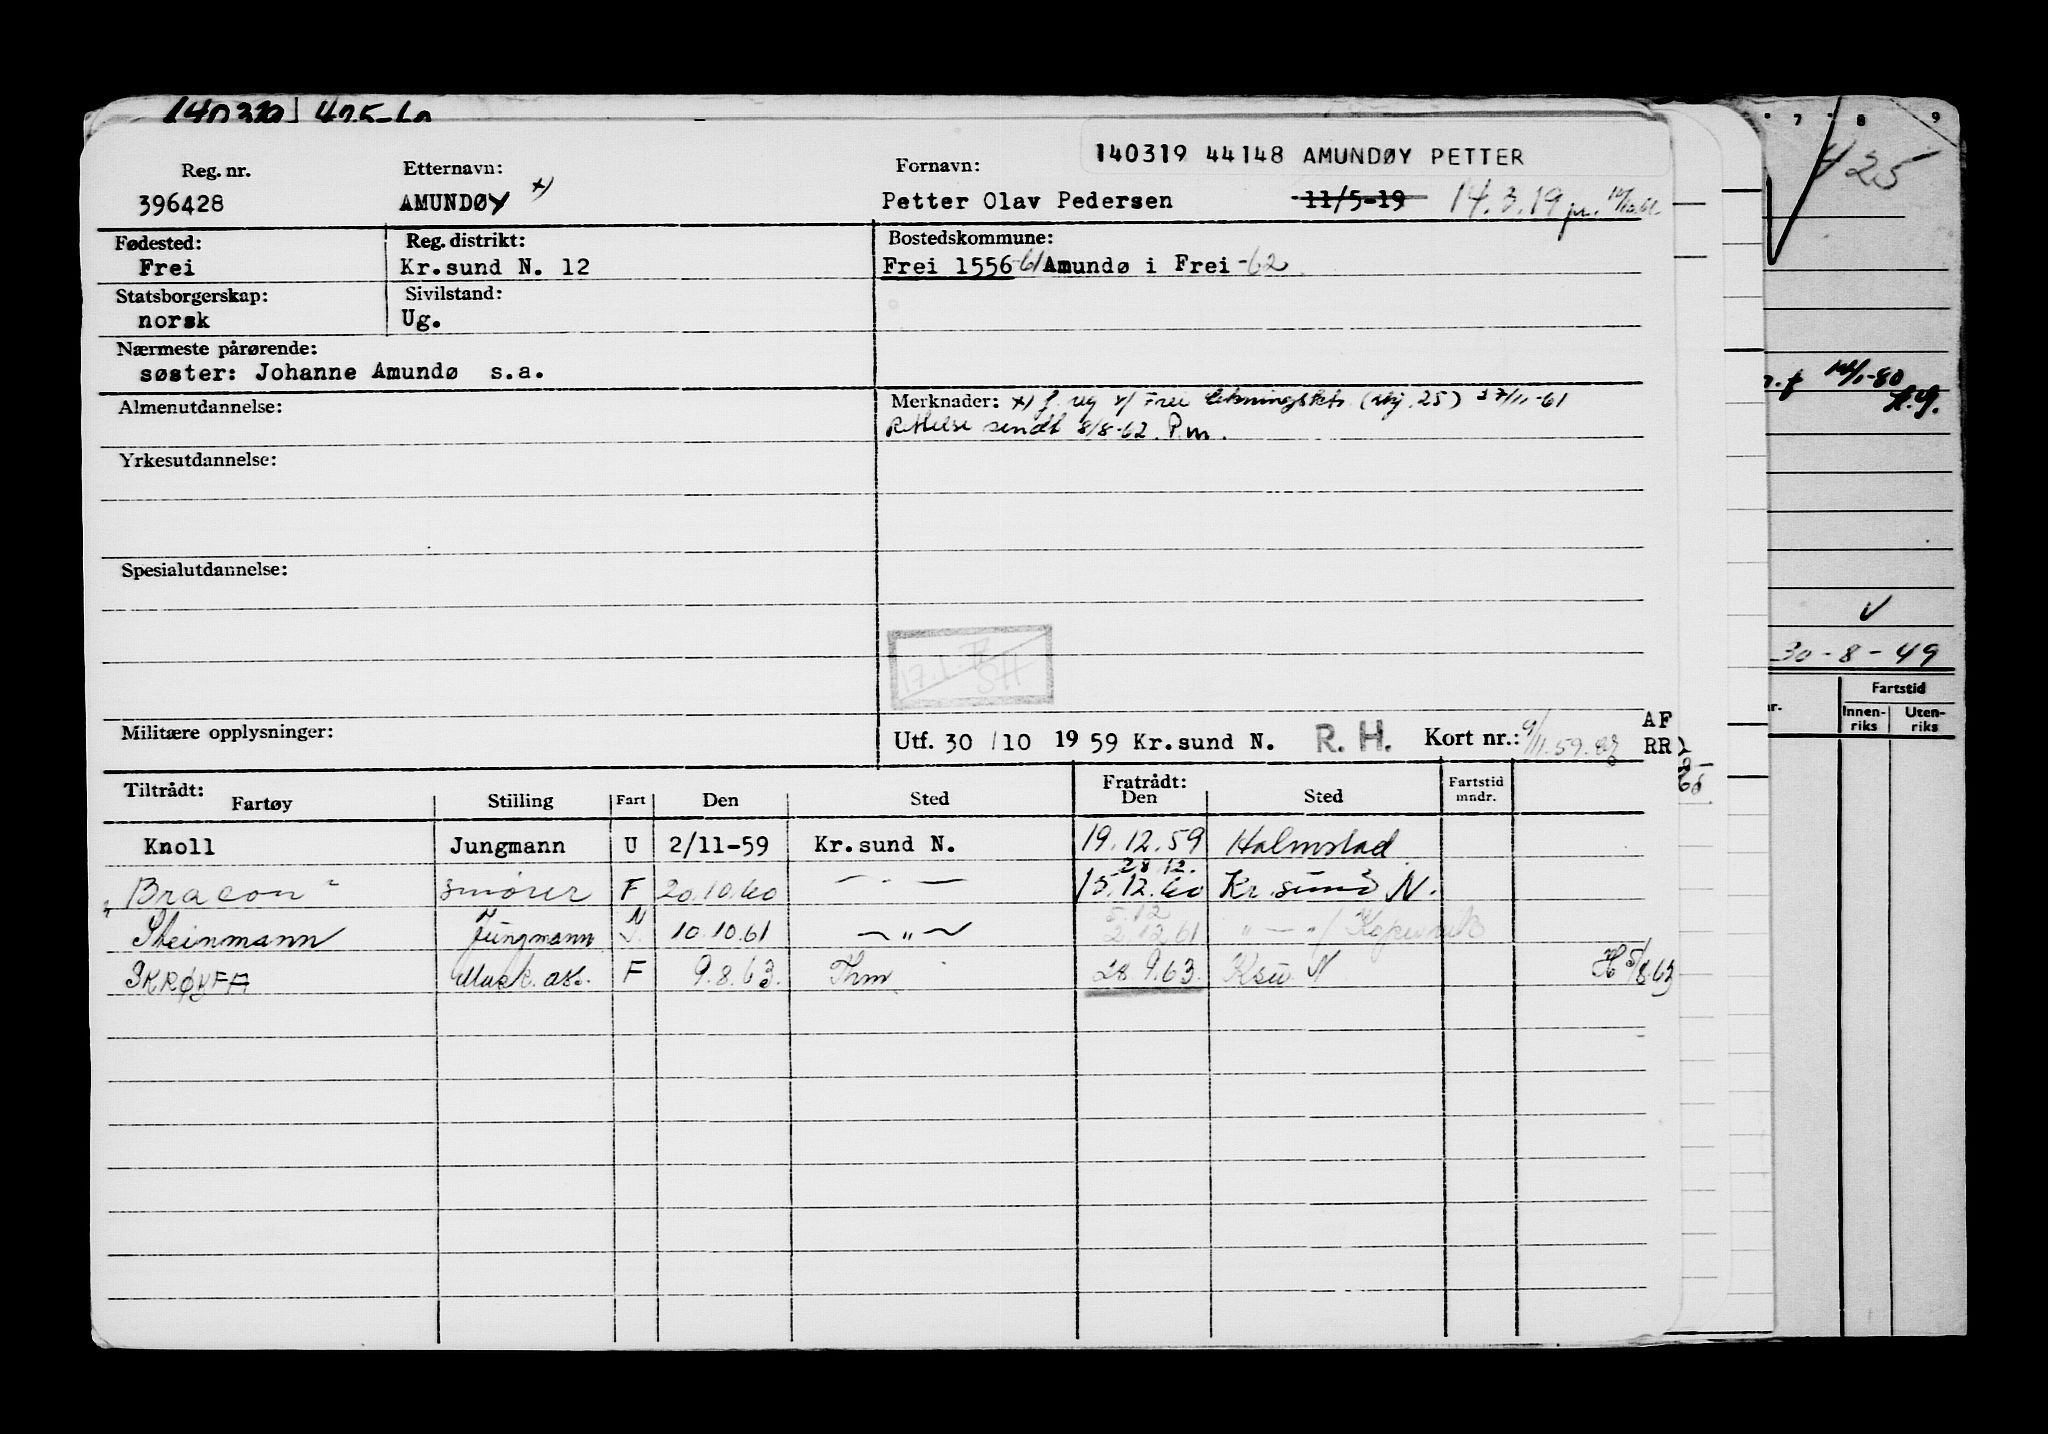 140319 44148 AMUNDØY PETTER
Reg. nr. Etternavn: Fornavn:
396428 AMUNDØY x) Petter Olav Pedersen 11/5-19 14.3.19
Fødested: Reg. distrikt: Bostedskommune:
Frei Kr.sund N. 12 Frei 1556-61 Amundø i Frei -62
Statsborgerskap: Sivilstand:
norsk Ug.
Nærmeste pårørende:
søster: Johanne Amundø s.a.
Almenutdannelse: Merknader: x) f. reg v/ Frei 27/11-61
Rettelse sendt 8/8-62. P.m.
Yrkesutdannelse:
Spesialutdannelse:
Militære opplysninger: Utf. 30/10 1959 Kr.sund N. R. H. Kort nr.: 9/11.59.
AF
RR
Tiltrådt: Fratrådt:
Fartøy Stilling Fart Den Sted Den Sted Fartstid mndr.
Knoll Jungmann U 2/11-59 Kr.sund N. 19.12.59 Halmstad
28.12.
"Bracon" smører F 20.10.60 — " — 15.12.60 Kr.sund N.
5.12
Steinmann Jungmann N 10.10.61 — " — 2.12.61 " — " / Kopervik
SKRØYFA Mask. ass. F 9.8.63. Thm 28.9.63. Ksu N H 5/8.63
7 8 9
425
14/1-80
30-8-49
Fartstid
Innen-riks Uten-riks